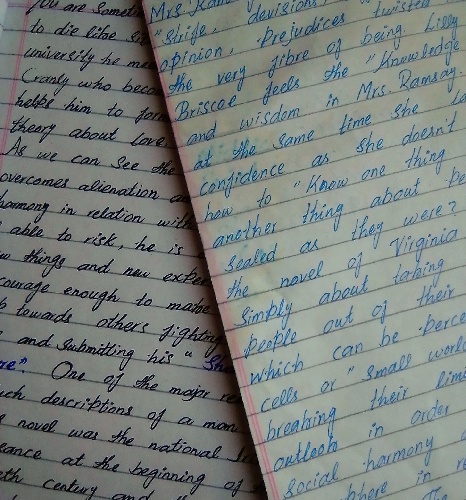 you are
to die like
university he
Cranly who
helps him to
theory about love
As we can see the
overcomes alienation
harmony in relation with
able to risk, he is
things and new
courage enough to
towards others fighting
and submitting his "
One of the major
descriptions of a man
novel was the national
at the beginning of
century and
Mrs.
"Strife, devisions, twisted
opinion, Prejudices
the very fibre of being. Lilly
Briscoe feels the "Knowledge
and wisdom in Mrs. Ramsay.
at the same time she
confidence as she doesn't
how to "Know one thing
another thing about
sealed as they were?
the novel of Virginia
Simply about taking
people out of their
which can be
cells or "small
breaking their
outlook in order
social harmony
in
The